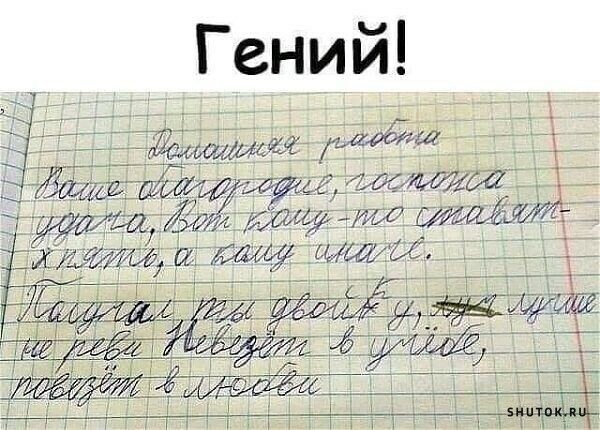 Гений!
Домашняя работа
Ваше благородие, госпожа
удача, Вот кому-то ставят-
х пять, а кому иначе.
Палучал ты двойку, луч лучше
не реви Невезёт в учёбе,
повезёт в любви
SHUTOK.RU